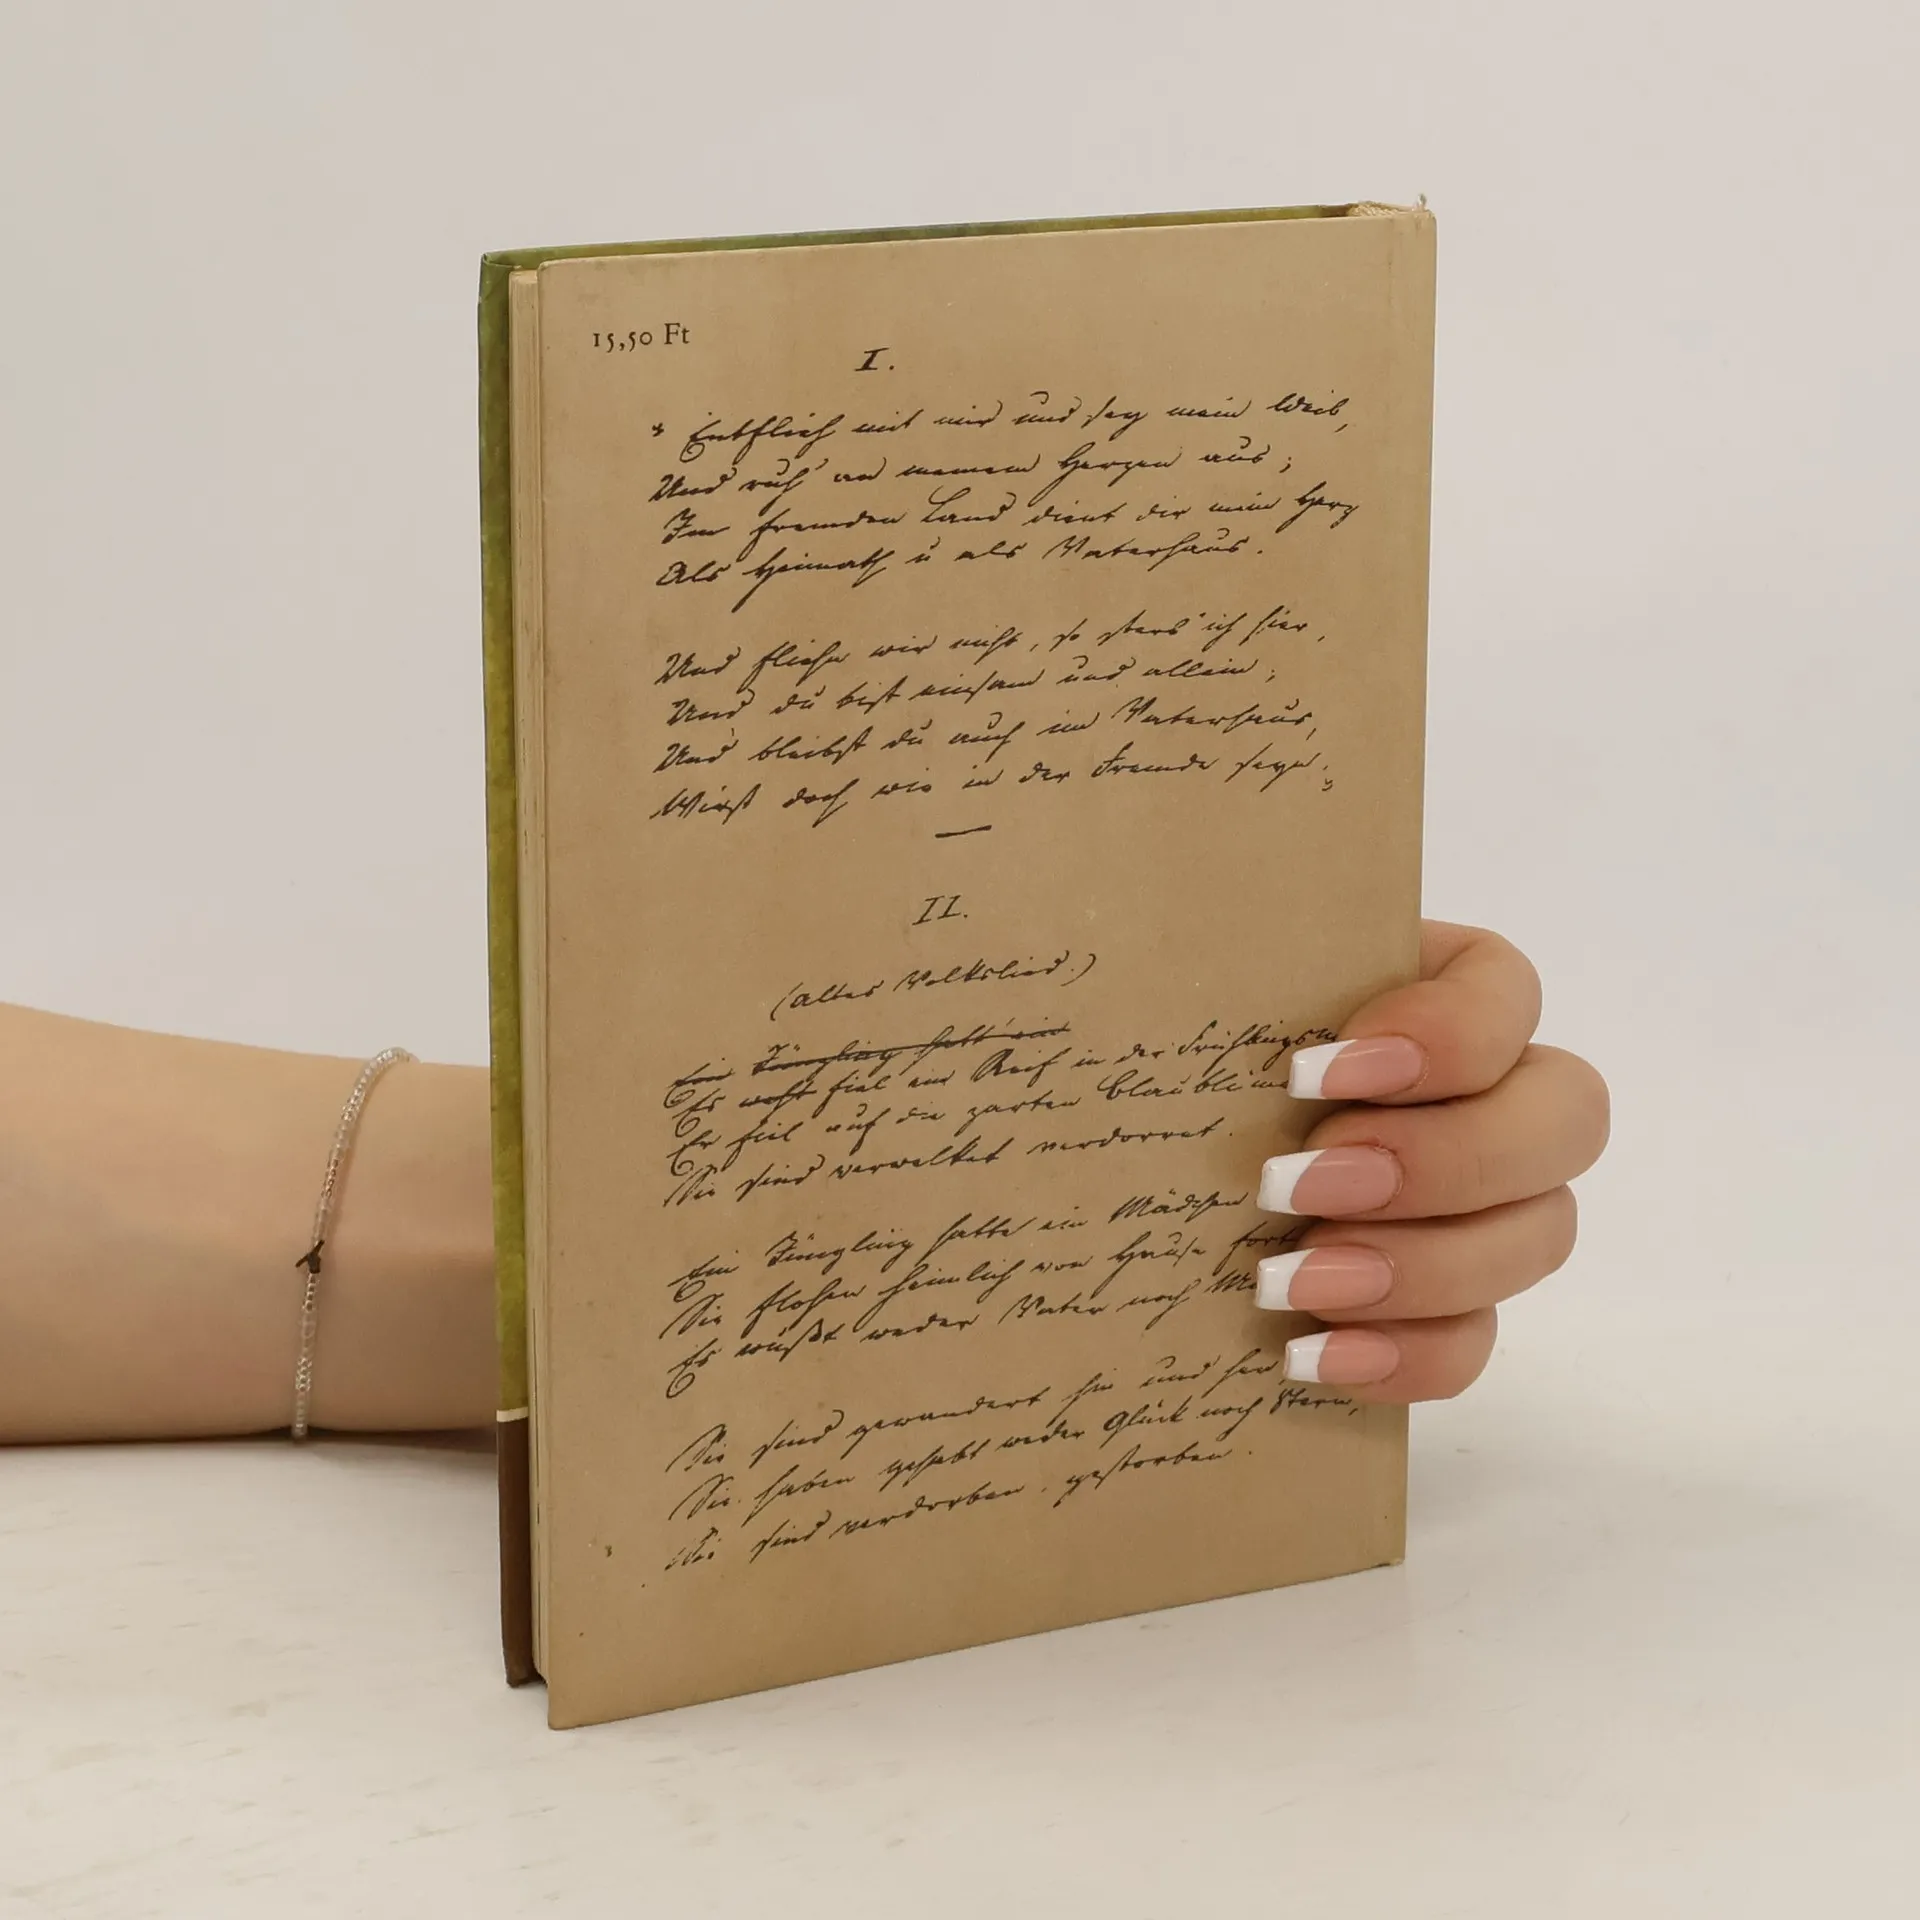 15,50 Ft
I.
„Entflieh mit mir und sey mein Weib,
Und ruh' an meinem Herzen aus;
Im fremden Land dient dir mein Herz
Als Heimath u als Vaterhaus.
Und fliehn wir nicht, so sterb' ich hier,
Und du bist einsam und allein;
Und bleibst du auch im Vaterhaus,
Wirst doch wie in der Fremde seyn.“
II.
(Altes Volkslied.)
Ein Jüngling hatt' ein
Es fiel ein Reif in der
Er fiel auf die zarten
Sie sind verwelket verdorret.
Ein Jüngling hatte ein Mädchen
Sie flohen heimlich von Hause fort
Es wußt weder Vater noch
Sie sind gewandert hin und her,
Sie haben gehabt weder Glück noch Stern,
Sie sind verdorben, gestorben.